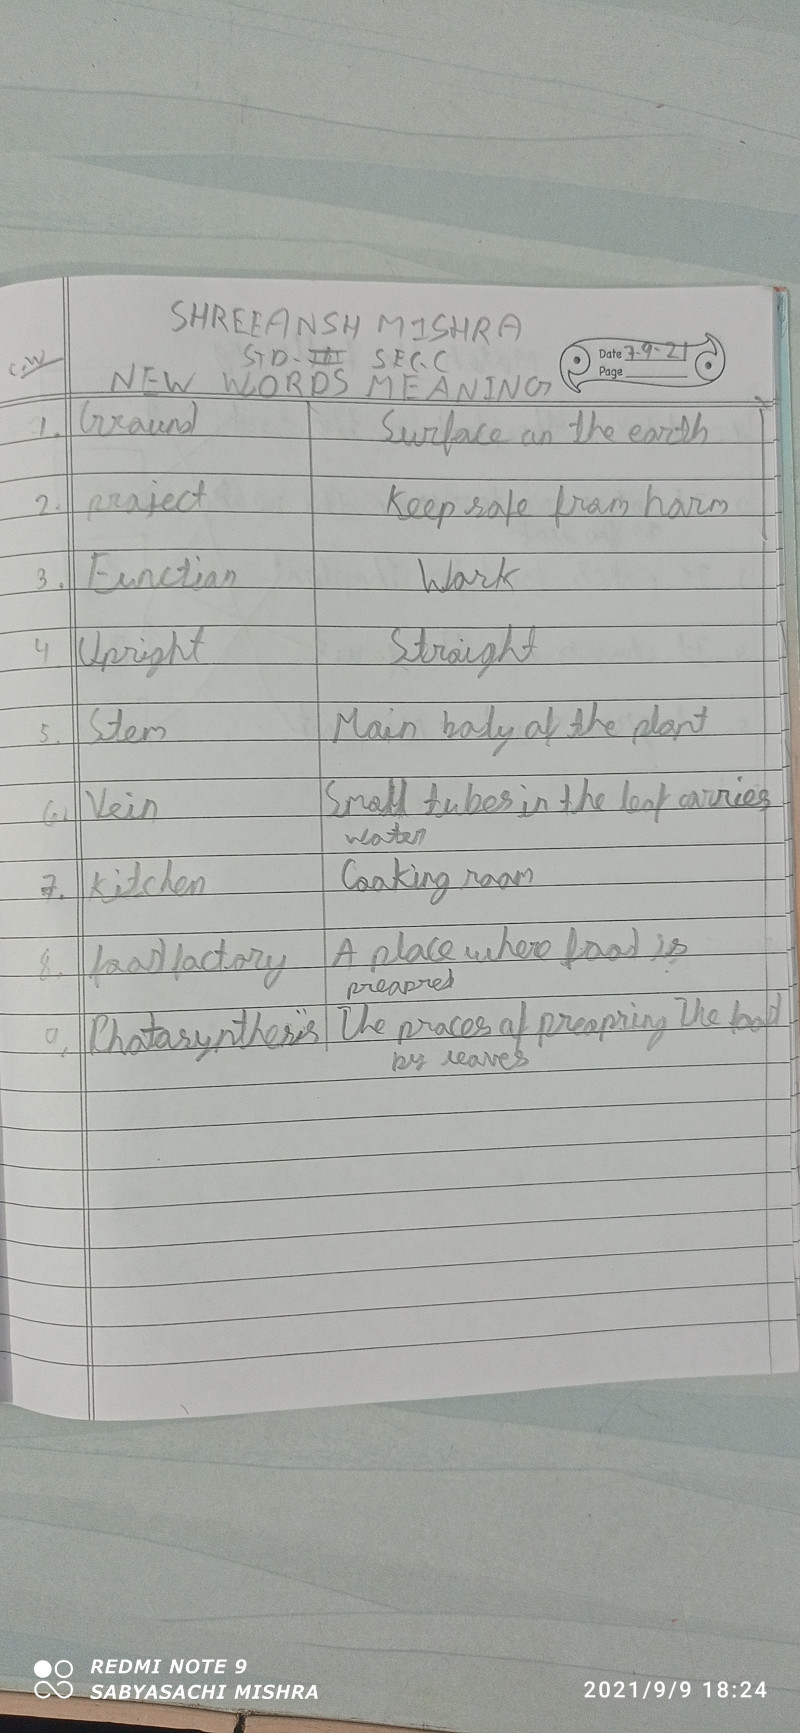 SHREEANSH MISHRA
C.W
STD-III SEC.C
Date 7-9-21
Page
NEW WORDS MEANING
1. Graund Surface an the earth
2. praject Keep safe fram harm
3. Functian Wark
4 Upright Straight
5. Stem Main bady af the plant
6. Vein Small tubes in the leaf carries
water
7. kitchen Caaking raam
8. faad factory A place where faad is
preapred
9. Phatasynthesis The praces af preapring The faad
by leaves
REDMI NOTE 9
SABYASACHI MISHRA
2021/9/9 18:24